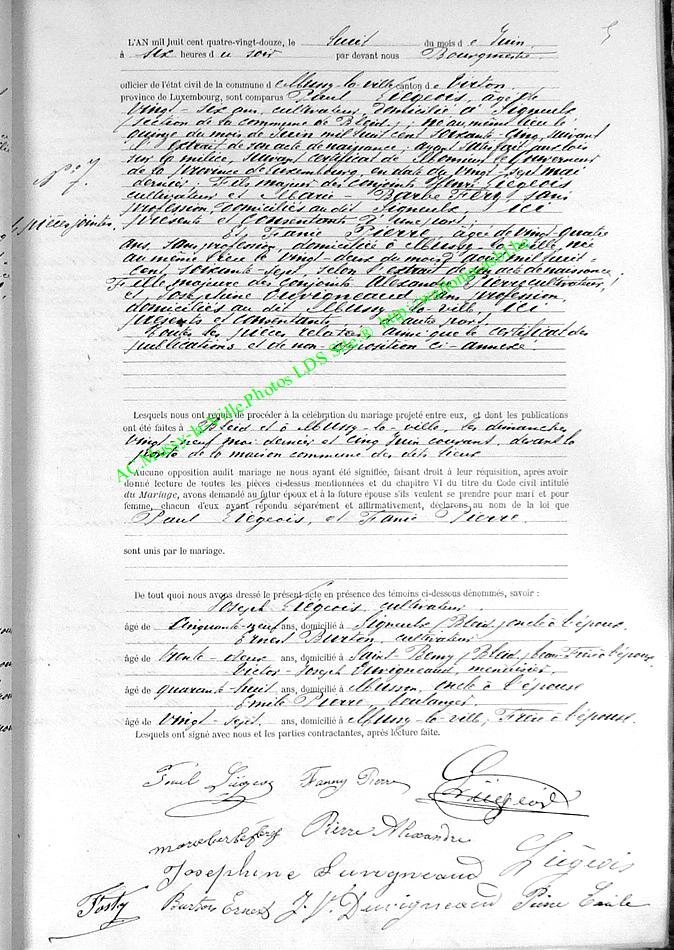 5
L'AN mil huit cent quatre-vingt-douze, le huit du mois de Juin
à six heures du soir par devant nous Bourgmestre
officier de l'état civil de la commune de Mussy-la-ville canton de Virton
province de Luxembourg, sont comparus Paul Liégeois, âgé de
vingt-six ans, cultivateur, domicilié à Signeulx
section de la commune de Bleid, né au même lieu le
quinze du mois de Juin mil huit cent soixante-cinq, suivant
l'extrait de son acte de naissance; ayant satisfait aux lois
sur la milice, suivant certificat de Monsieur le Gouverneur
de la province de Luxembourg, en date du vingt-sept mai
N° 7.
dernier; Fils majeur des conjoints Henri Liégeois
cultivateur et Marie-Barbe Fery, sans
profession, domiciliés au dit Signeulx, ici
pièces jointes
présents et consentants d'une part;
Et Fanie Pierre âgée de vingt-quatre
ans, sans profession, domiciliée à Mussy-la-ville, née
au même lieu le vingt-deux du mois d'août mil huit-
cent soixante-sept, selon l'extrait de son acte de naissance;
Fille majeure des conjoints Alexandre Pierre cultivateur,
et Josephine Duvigneaud, sans profession,
domiciliés au dit Mussy-la-ville, ici
présents et consentants d'autre part;
Toutes les pièces relatées ainsi que le certificat des
publications et de non-opposition ci-annexé
AC.Mussy-la-Ville.Photos LDS Site.® http://wallonia-asbl.be
Lesquels nous ont requis de procéder à la célébration du mariage projeté entre eux, et dont les publications
ont été faites à Bleid et à Mussy-la-ville, les dimanches
vingt-neuf mai dernier et cinq Juin courant, devant la
porte de la maison commune des dits lieux
Aucune opposition audit mariage ne nous ayant été signifiée, faisant droit à leur réquisition, après avoir
donné lecture de toutes les pièces ci-dessus mentionnées et du chapitre VI du titre du Code civil intitulé
du Mariage, avons demandé au futur époux et à la future épouse s'ils veulent se prendre pour mari et pour
femme, chacun d'eux ayant répondu séparément et affirmativement, déclarons au nom de la loi que
Paul Liégeois, et Fanie Pierre
sont unis par le mariage.
De tout quoi nous avons dressé le présent acte en présence des témoins ci-dessous dénommés, savoir :
Joseph Liégeois, cultivateur
âgé de Cinquante-neuf ans, domicilié à Signeulx (Bleid) oncle à l'époux.
Ernest Burton, cultivateur
âgé de trente-deux ans, domicilié à Saint-Remy (Bleid) beau-Frère à l'époux
Victor-Joseph Duvigneaud, menuisier,
âgé de quarante-huit ans, domicilié à Musson, oncle à l'épouse
Emile Pierre, boulanger,
âgé de vingt-sept ans, domicilié à Mussy-la-ville, Frère à l'épouse.
Lesquels ont signé avec nous et les parties contractantes, après lecture faite.
Paul Liégeois Fanny Pierre Liégeois
Pierre Alexandre
Josephine Duvigneaud Liégeois
Burton Ernest J. V. Duvigneaud Pierre Emile